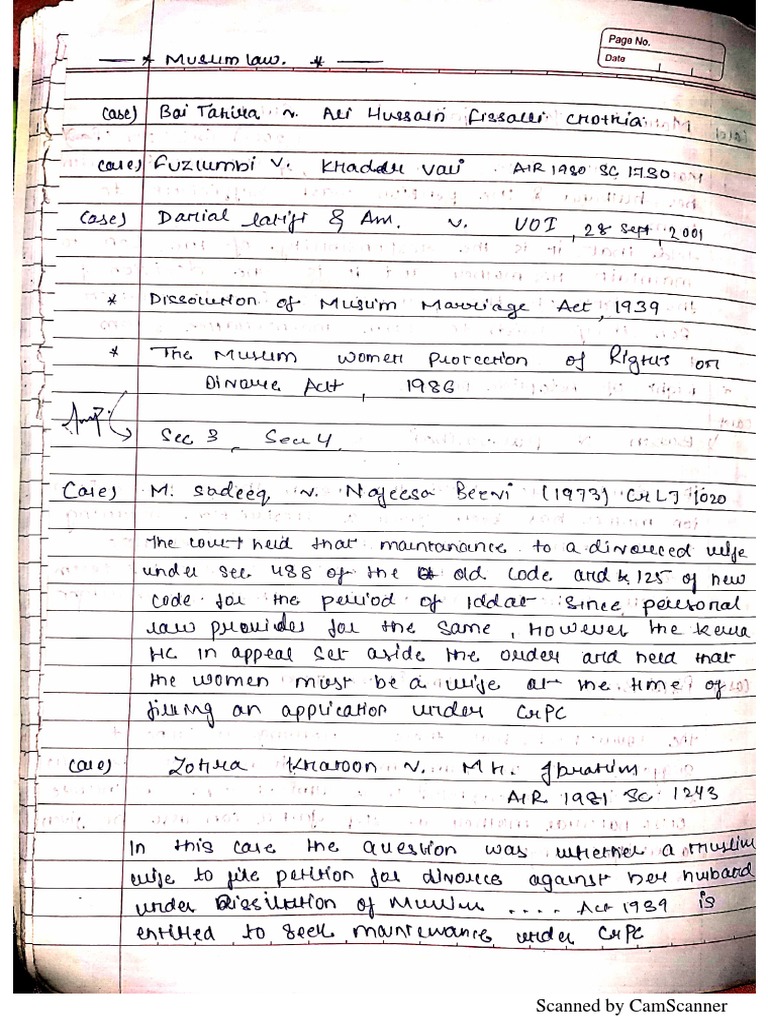 Page No.
Date
— * Muslim law. * —
Case) Bai Tahira v. Ali Hussain Fissalli Chothia
Case) Fuzlumbi v. Khadder Vali AIR 1980 SC 1730
Case) Danial Latifi & An. v. UOI, 28 Sept, 2001
* Dissolution of Muslim Marriage Act, 1939
* The Muslim women protection of Rights on
Divorce Act, 1986
Imp.
Sec 3, Sec 4.
Case) M. Sadeeq v. Nafeesa Beevi (1973) CrLJ 1020
The court held that maintanance to a divorced wife
under sec 488 of the old code and 125 of new
code for the period of Iddat since personal
law provides for the same, However the Kerla
HC in appeal set aside the order and held that
the women must be a wife at the time of
filling an application under CrPC
Case) Zohra Khatoon v. Mh. Ibrahim
AIR 1981 SC 1243
In this case the question was whether a muslim
wife to file petition for divorce against her husband
under Dissilution of Muslim .... Act 1939 is
entitled to seek maintenance under CrPC
Scanned by CamScanner